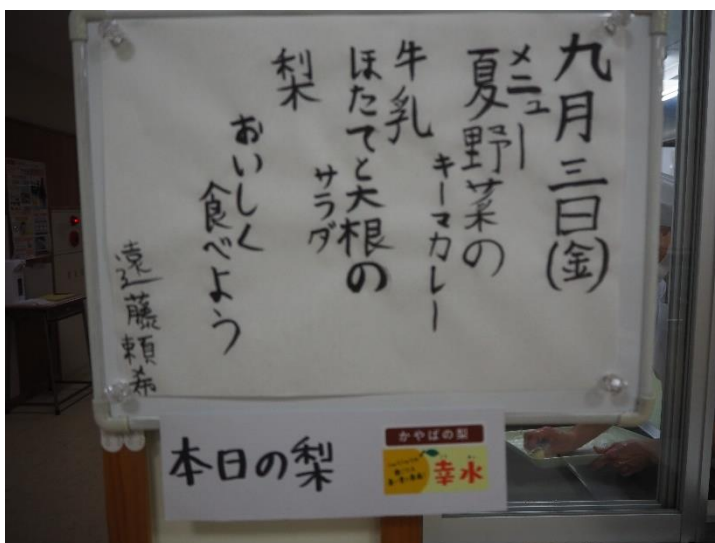 九月三日(金)
メニュー
夏野菜の
キーマカレー
牛乳
ほたてと大根の
サラダ
梨
おいしく
食べよう
遠藤頼希
本日の梨
かやばの梨
幸水